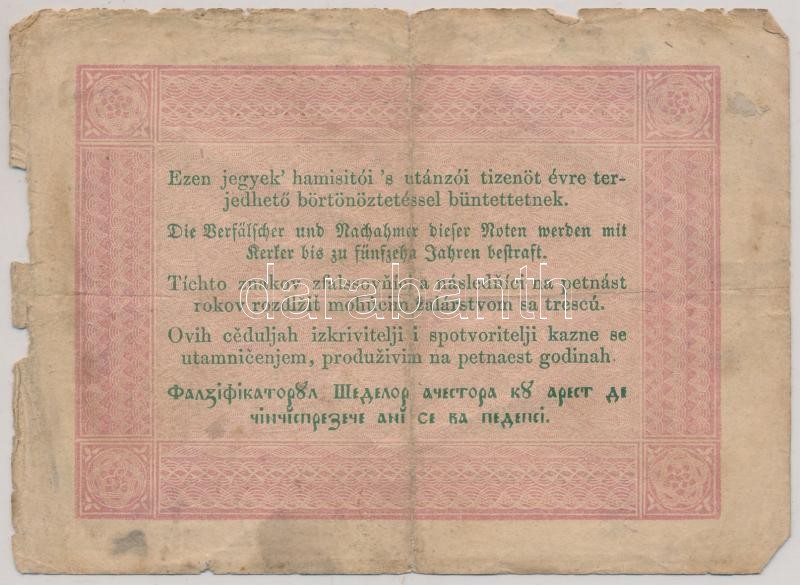 Ezen jegyek' hamisitói 's utánzói tizenöt évre ter-
jedhető börtönöztetéssel büntettetnek.
Die Verfälscher und Nachahmer dieser Noten werden mit
Kerker bis zu fünfzehn Jahren bestraft.
Tíchto znakov zfalssovňíci a následňíci na petnást
rokov rozdížiť mohúcim žalárstvom sa trescú.
darabanth
Ovih cěduljah izkrivitelji i spotvoritelji kazne se
utamničenjem, produživim na petnaest godinah.
Фалꙁіфікаторꙋл Шеделор ачестора кꙋ арест де
чінчіспреꙁече ані се ва педепсі.